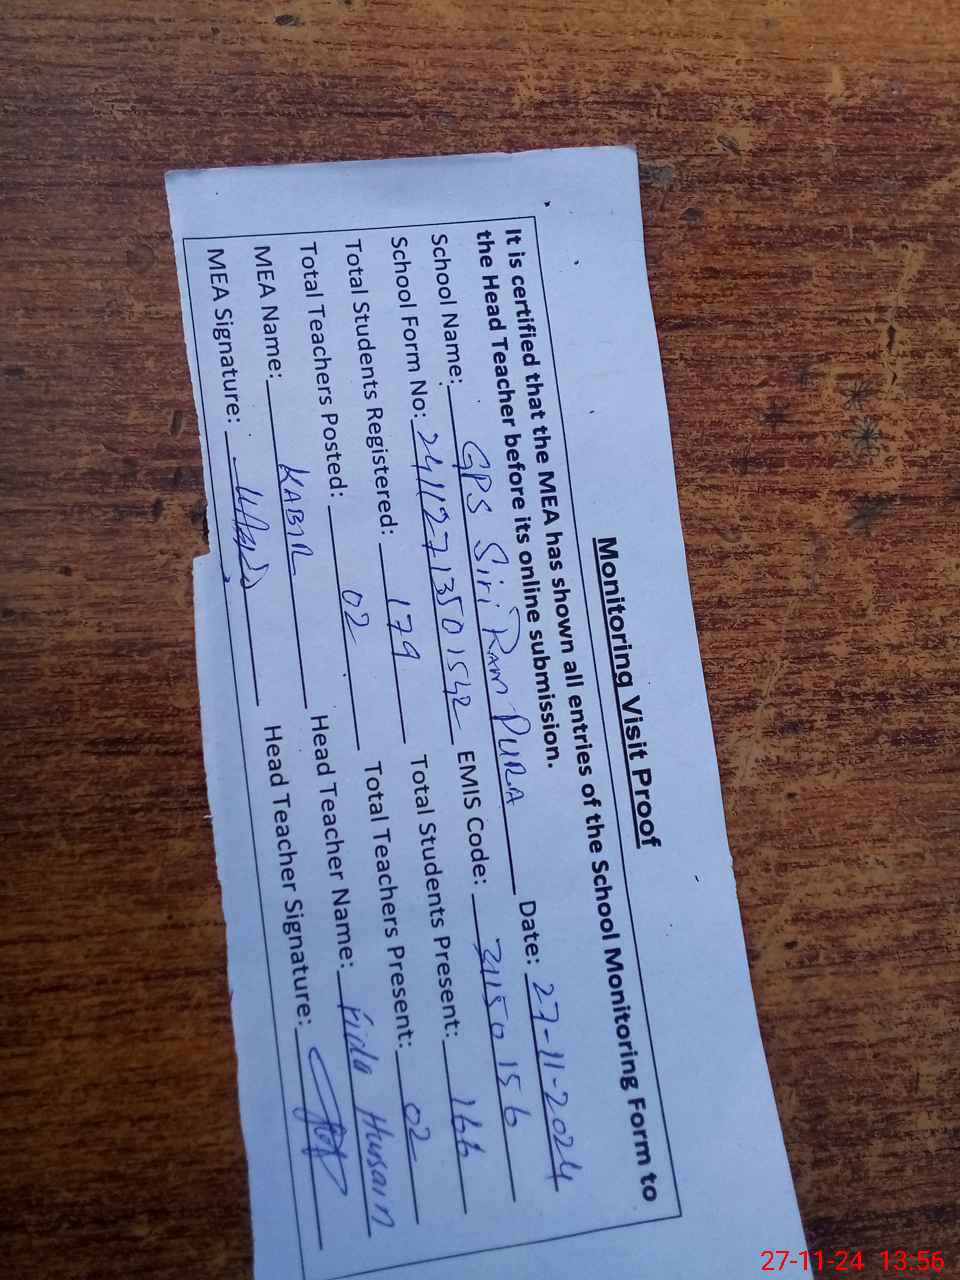 Monitoring Visit Proof
It is certified that the MEA has shown all entries of the School Monitoring Form to
the Head Teacher before its online submission.
School Name: GPS Siri Ram Pura Date: 27-11-2024
School Form No: 24112713501542 EMIS Code: 31150156
Total Students Registered: 179 Total Students Present: 166
Total Teachers Posted: 02 Total Teachers Present: 02
MEA Name: KABIR Head Teacher Name: Fida Husain
MEA Signature: Head Teacher Signature:
27-11-24 13:56